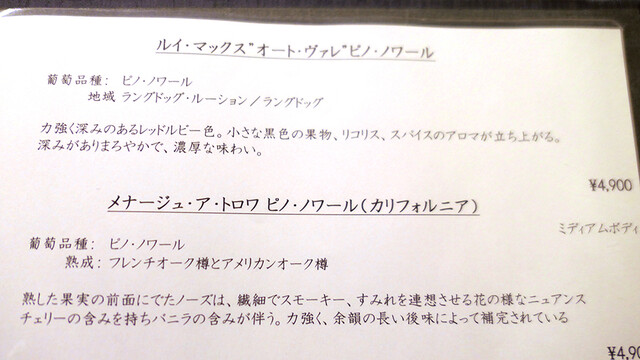 ルイ・マックス"オート・ヴァレ"ピノ・ノワール
葡萄品種: ピノ・ノワール
地域 ラングドッグ・ルーション/ラングドッグ
力強く深みのあるレッドルビー色。小さな黒色の果物、リコリス、スパイスのアロマが立ち上がる。
深みがありまろやかで、濃厚な味わい。
¥4,900
メナージュ・ア・トロワ ピノ・ノワール(カリフォルニア)
ミディアムボディ
葡萄品種: ピノ・ノワール
熟成: フレンチオーク樽とアメリカンオーク樽
熟した果実の前面にでたノーズは、繊細でスモーキー、すみれを連想させる花の様なニュアンス
チェリーの含みを持ちバニラの含みが伴う。力強く、余韻の長い後味によって補完されている